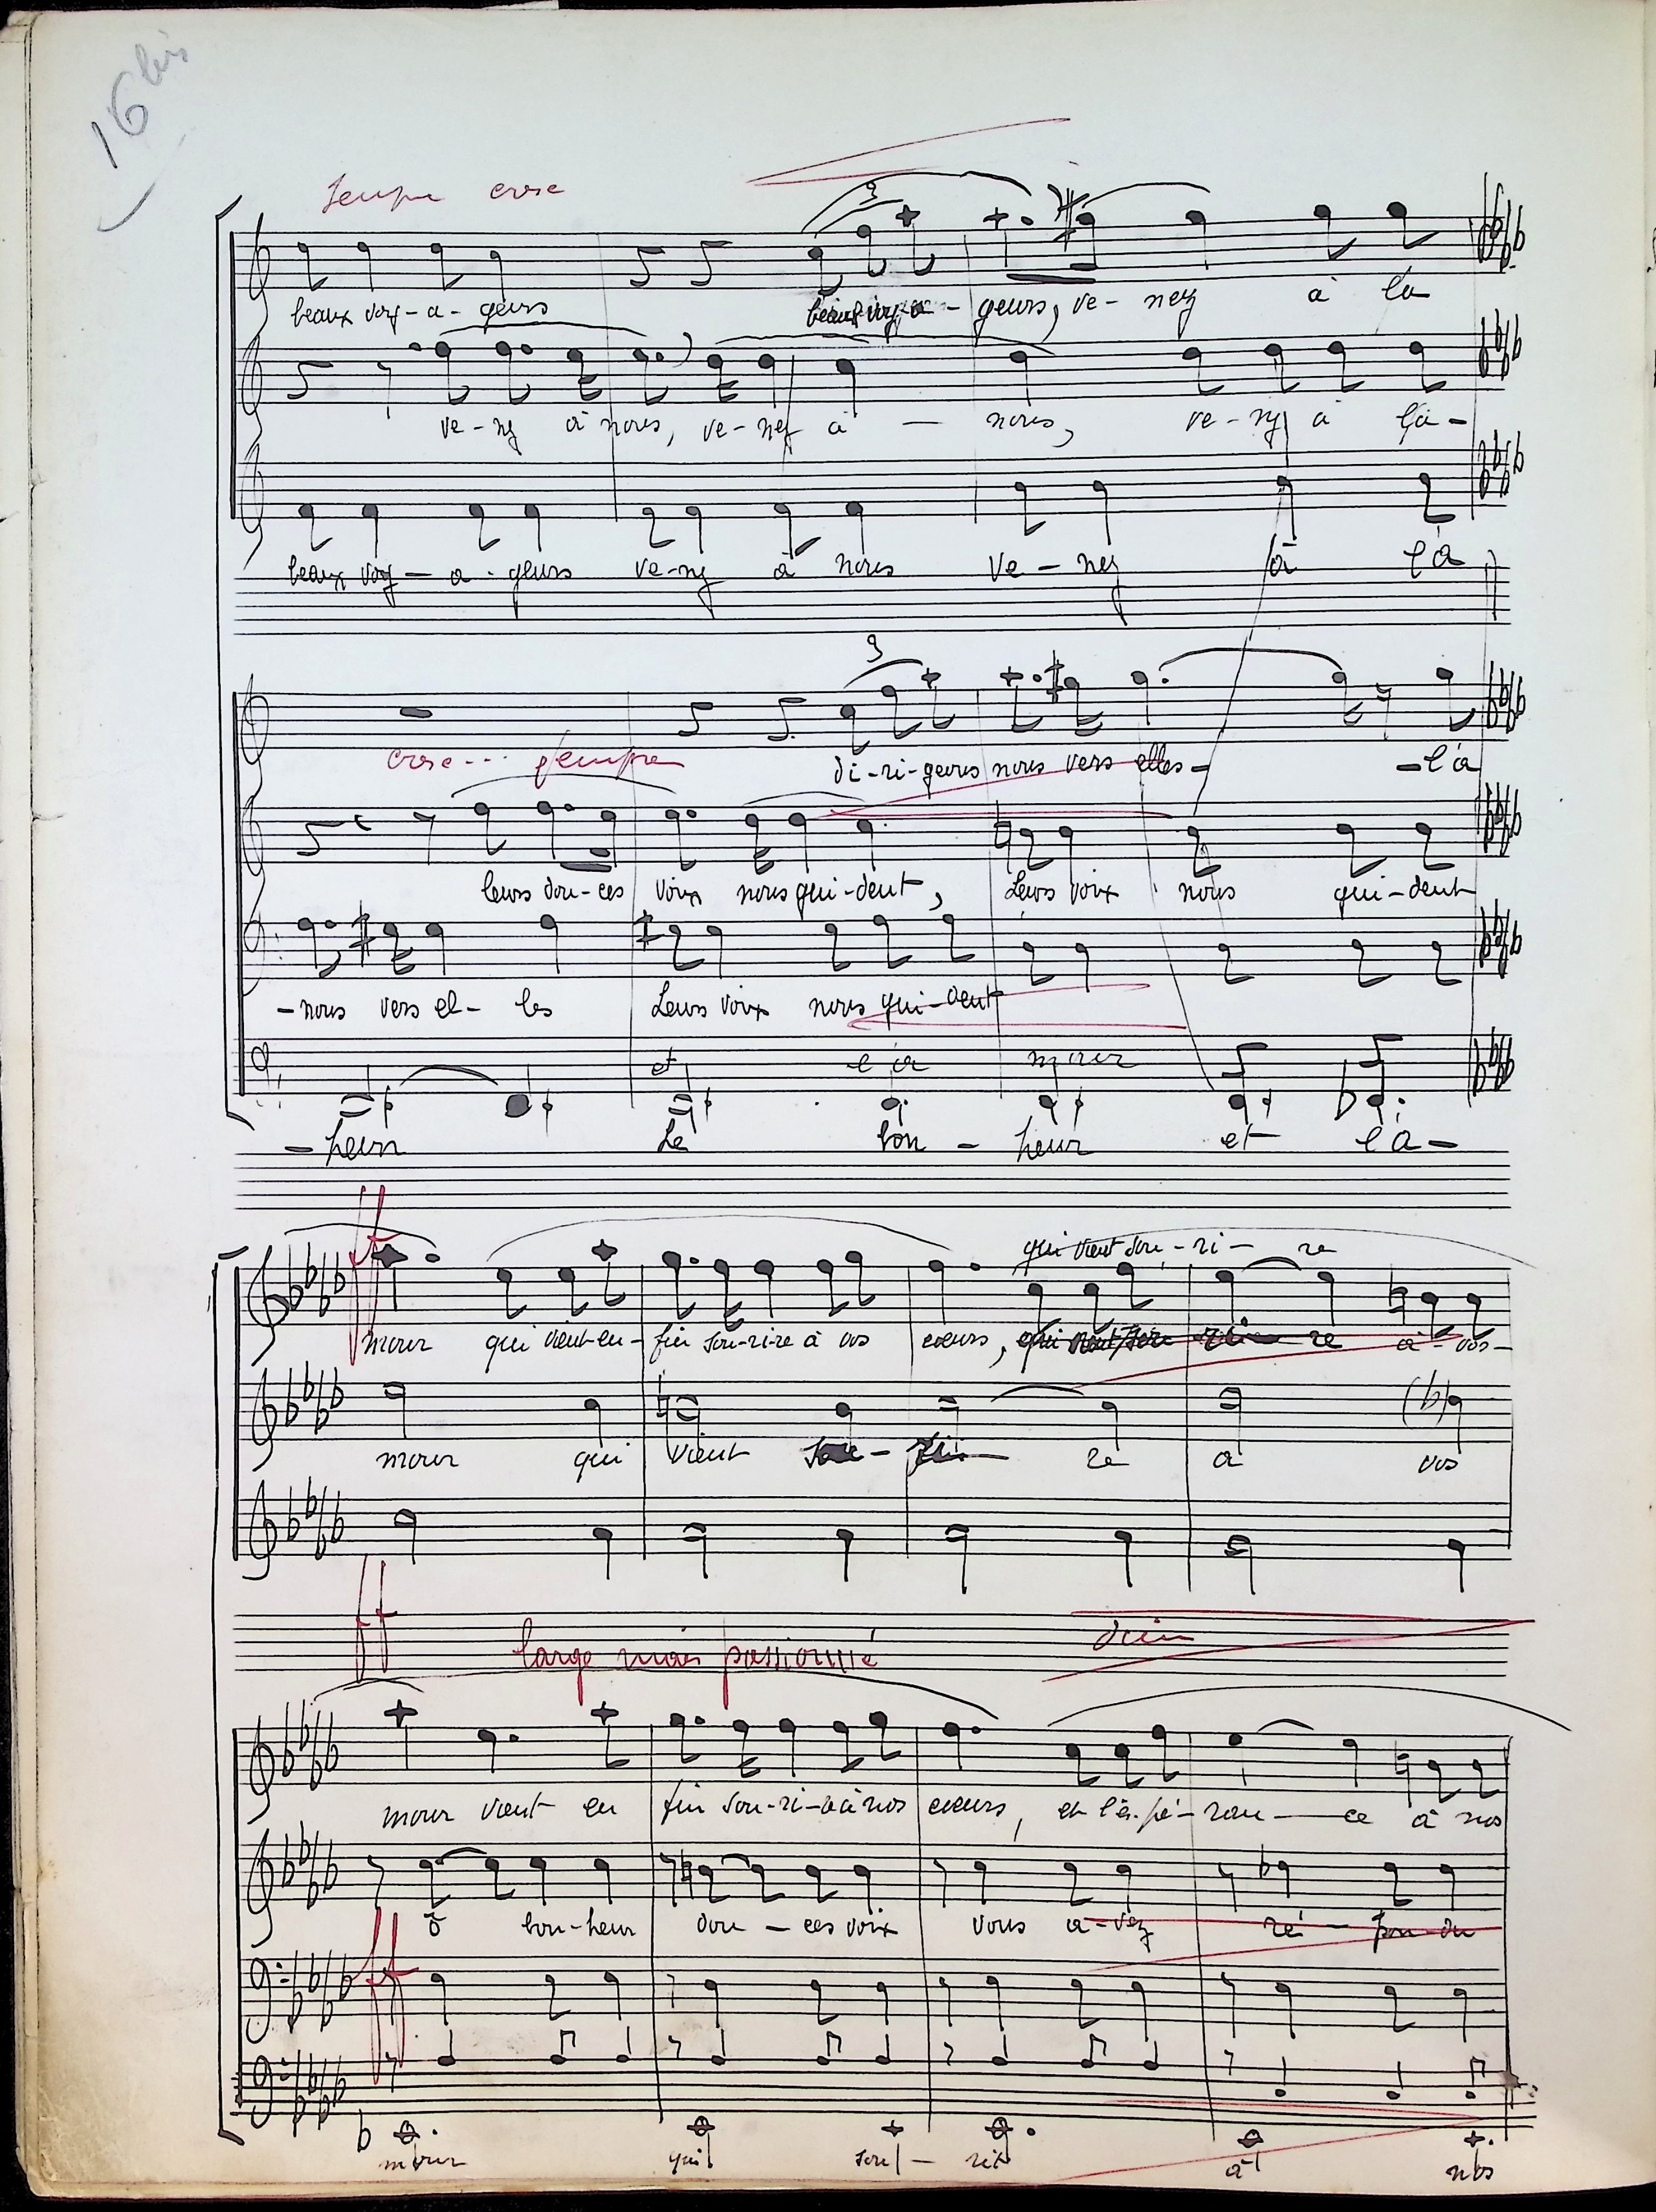 16 bis
sempre cresc
3
beaux voy-a-geurs beaux voy-a-geurs, ve-nez à la
ve-nez à nous, ve-nez à — nous, ve-nez à l'a-
beaux voy-a-geurs ve-nez à nous ve-nez à l'a
3
di-ri-geons nous vers elles- -l'a
cresc... sempre
leurs dou-ces voix nous gui-dent, Leurs voix nous gui-dent
-nous vers el-les Leurs voix nous gui-dent
et l'a mour
-heur Le bon-heur et l'a-
ff
qui vient sou-ri-re
mour qui vient en-fin sou-rire à vos cœurs, qui vient sou-ri-re à-vos-
mour qui vient sou-ri-re à vos
ff
large mais passionné dim
mour vient en fin sou-ri-re à nos cœurs, et l'es-pé-ran-ce à nos
ô bon-heur dou-ces voix vous a-vez ré-pon-du
ff
mour qui sou-rit à nos